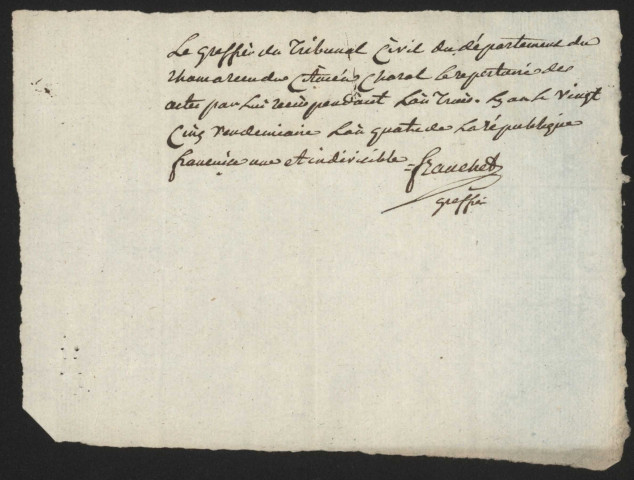 Le greffier du Tribunal Civil du département du
Rhone a recu du Citoien Charal le repertoire des
actes par lui recus pendant L'an Trois. Lyon le vingt
Cinq vendemiaire L'an quatre de La république
francaise une et indivisible = franchet
greffier